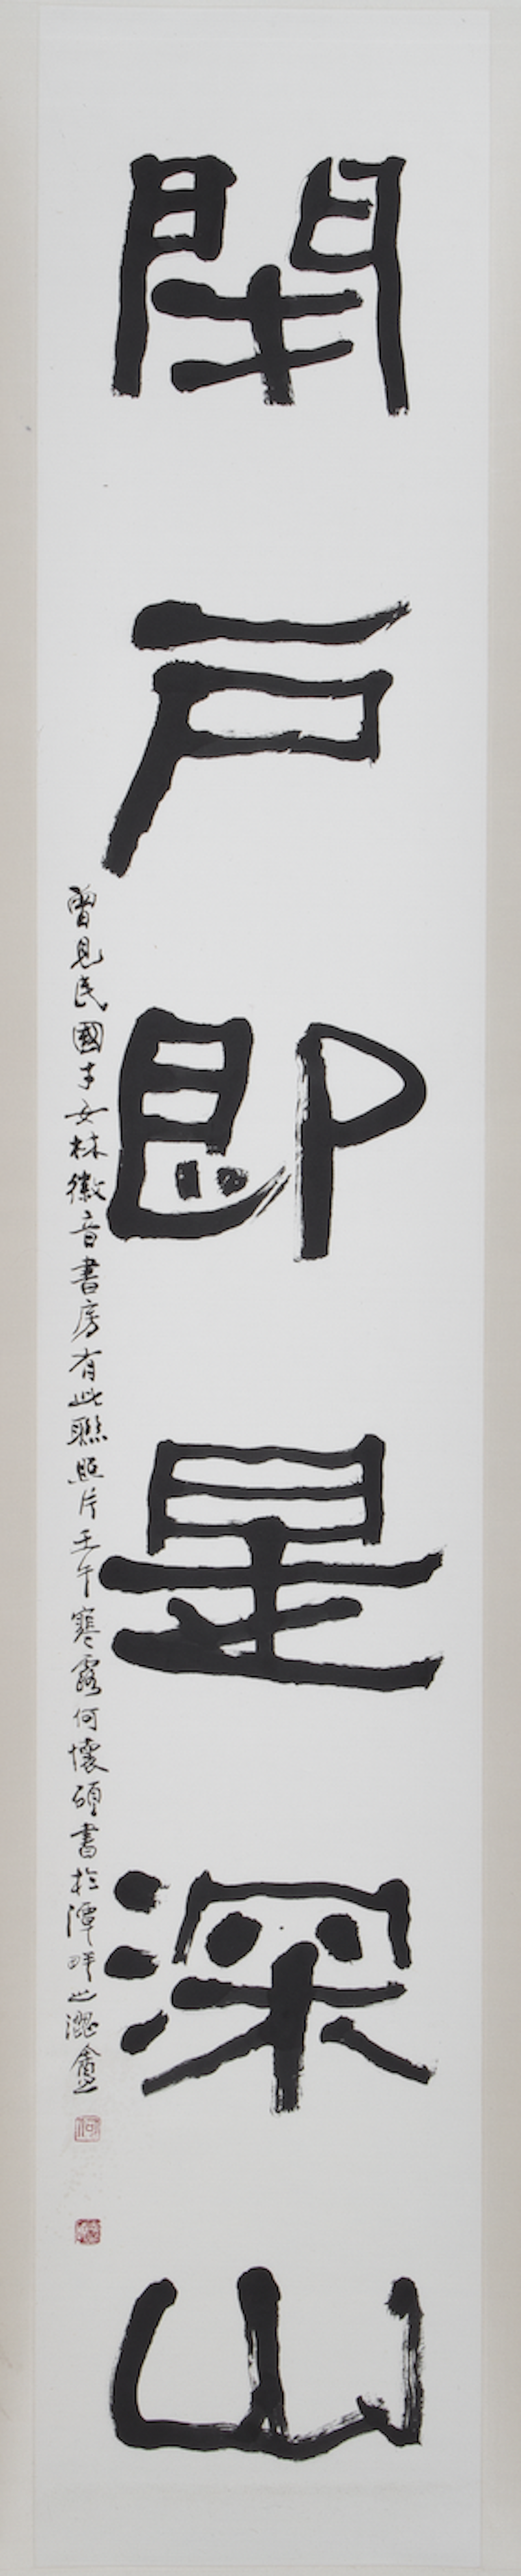 閉戶即是深山
曾見民國才女林徽音書房有此聯照片壬午寒露何懷碩書於潭畔之澀盦
何